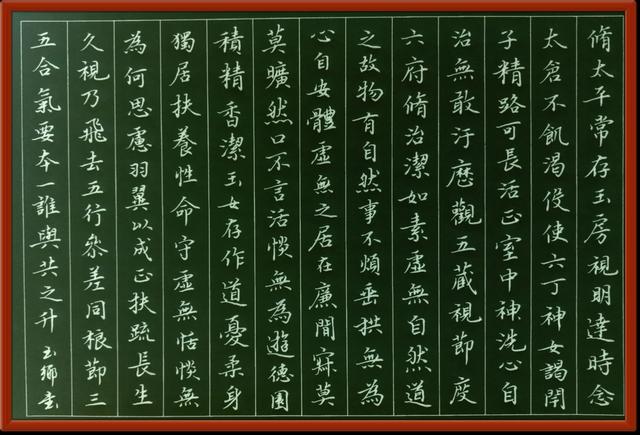 脩太平常存玉房視明達時念
太倉不飢渴役使六丁神女謁閉
子精路可長活正室中神洗心自
治無敢汙歷觀五藏視節度
六府脩治潔如素虛無自然道
之故物有自然事不煩垂拱無為
心自安體虛無之居在廉間寂莫
莫曠然口不言活惔無為遊德園
積精香潔玉女存作道憂柔身
獨居扶養性命守虛無恬惔無
為何思慮羽翼以成正扶疏長生
久視乃飛去五行參差同根節三
五合氣要本一誰與共之升 玉鄉書